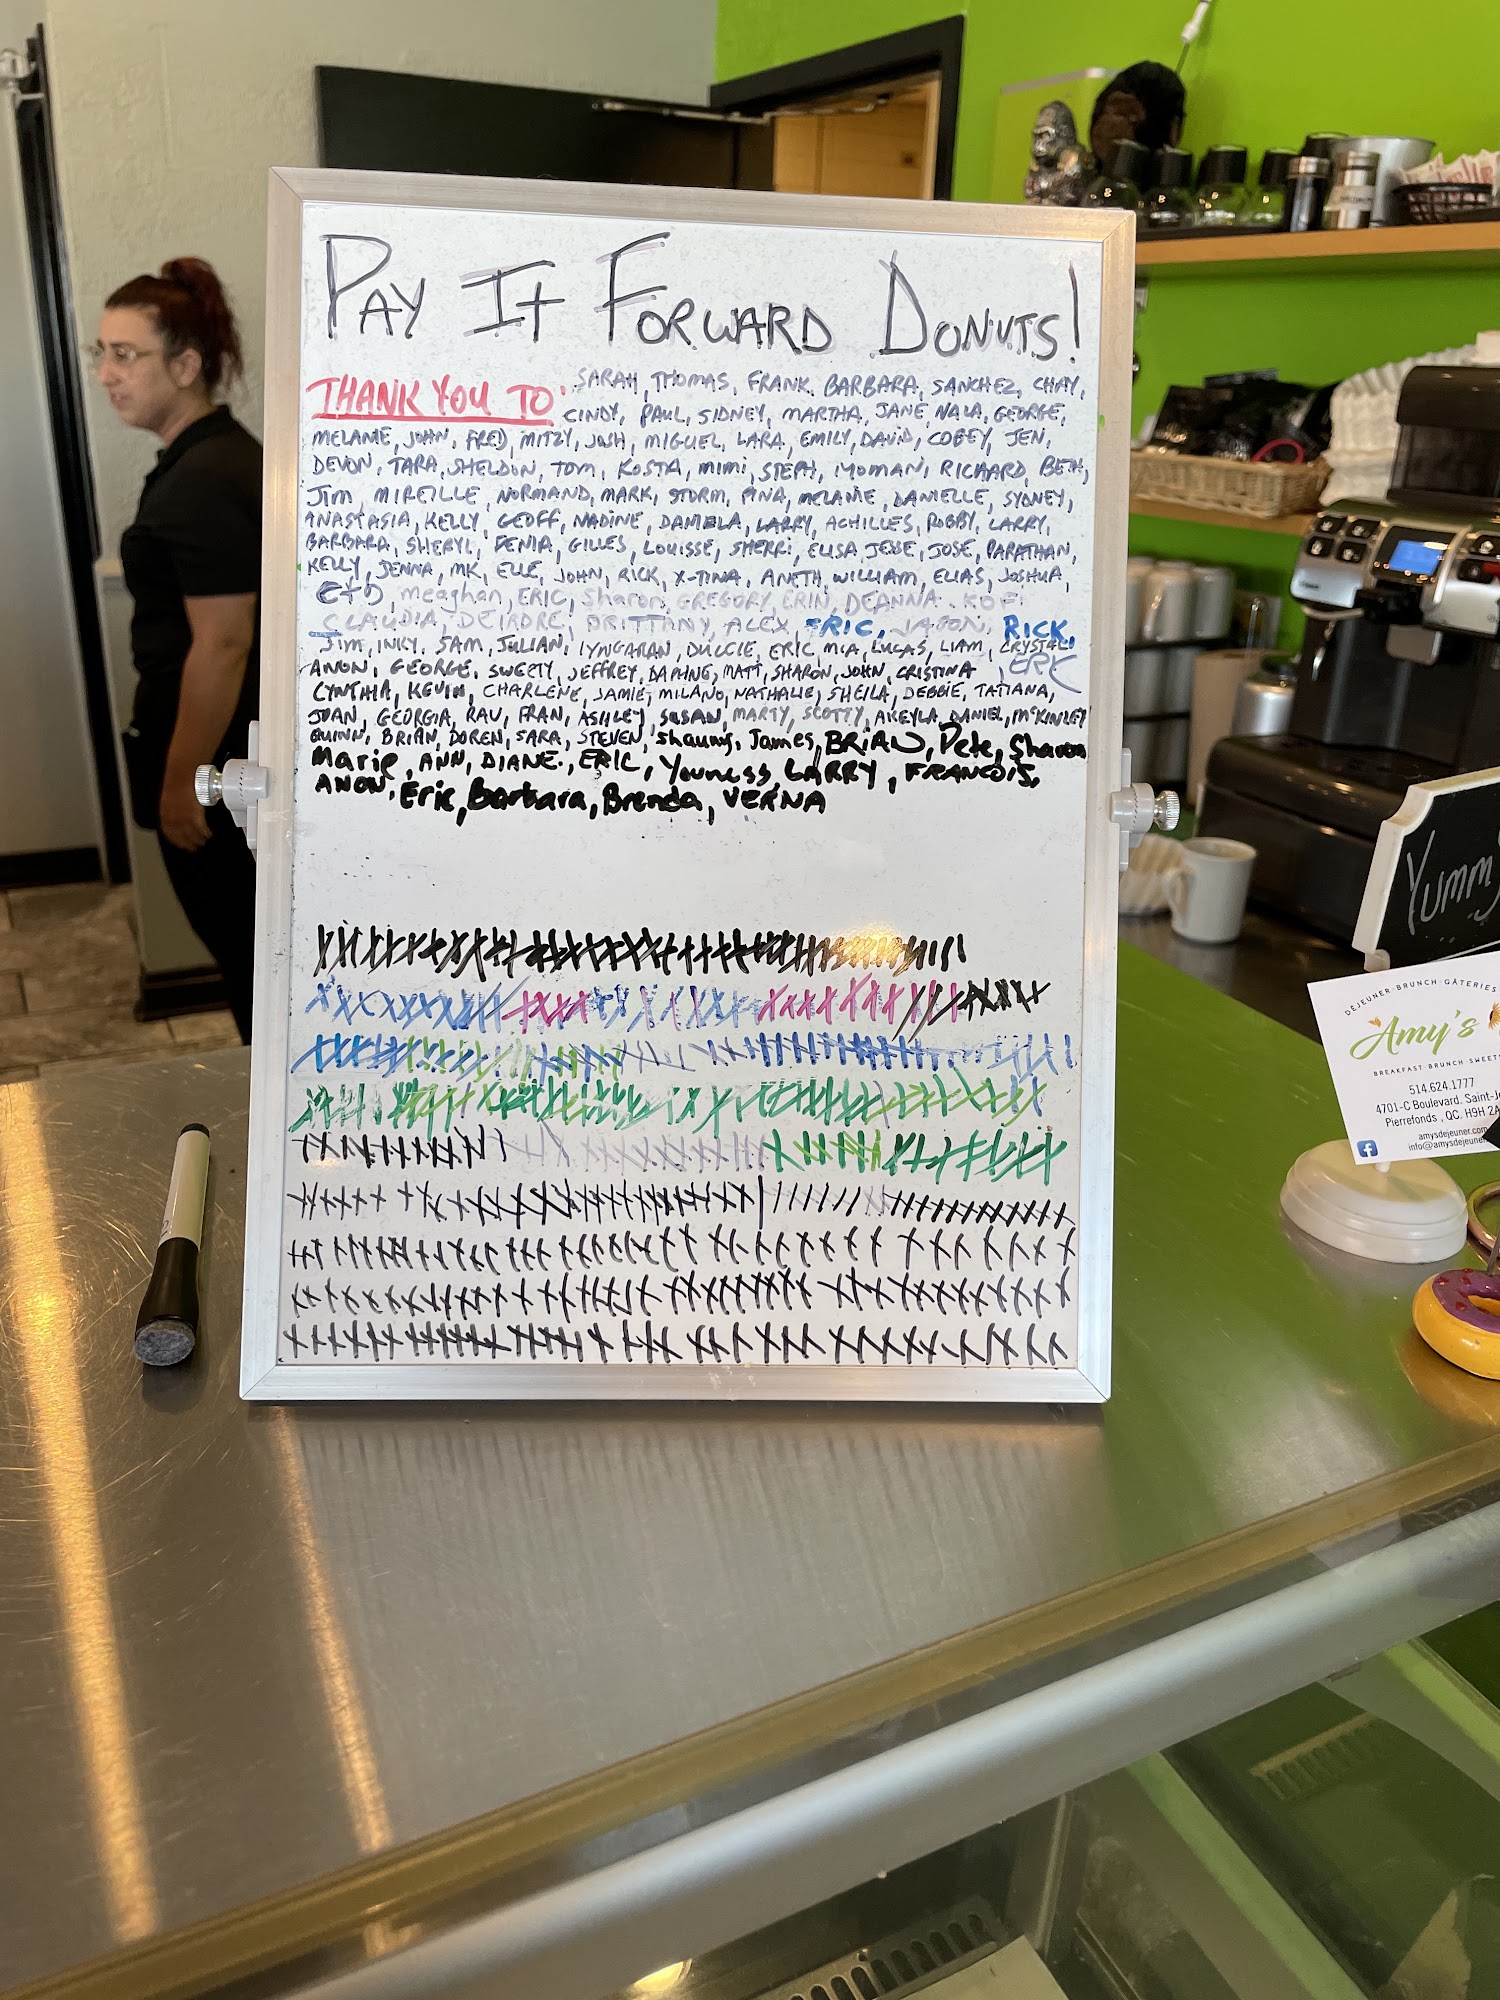 PAY IT FORWARD DONUTS!
THANK YOU TO: SARAH, THOMAS, FRANK, BARBARA, SANCHEZ, CHAY,
CINDY, PAUL, SIDNEY, MARTHA, JANE, NALA, GEORGE,
MELANIE, JOHN, FRED, MITZY, JOSH, MIGUEL, LARA, EMILY, DAVID, COBEY, JEN,
DEVON, TARA, SHELDON, TOM, KOSTA, MIMI, STEPH, IYOMAN, RICHARD, BETH,
JIM, MIREILLE, NORMAND, MARK, STORM, PINA, MELANIE, DANIELLE, SYDNEY,
ANASTASIA, KELLY, GEOFF, NADINE, DANIELA, LARRY, ACHILLES, ROBBY, LARRY,
BARBARA, SHERYL, GILLES, LOUISSE, SHERRI, ELISA, JESSE, JOSE, PARATHAN,
KELLY, JENNA, MK, ELLE, JOHN, RICK, X-TINA, ANETH, WILLIAM, ELIAS, JOSHUA,
meaghan, ERIC, Sharon, GREGORY, ERIN, DEANNA, KOFI
CLAUDIA, DEIRDRE, BRITTANY, ALEX, ERIC, JASON, RICK,
JIM, INKY, SAM, JULIAN, IYNGARAN, DULCIE, ERIC, MIA, LUCAS, LIAM, CRYSTAL,
ANON, GEORGE, SWEETY, JEFFREY, DAPHNE, MATT, SHARON, JOHN, CRISTINA, ERIC
CYNTHIA, KEVIN, CHARLENE, JAMIE, MILANO, NATHALIE, SHEILA, DEBBIE, TATIANA,
JOAN, GEORGIA, RAV, FRAN, ASHLEY, SUSAN, MARTY, SCOTTY, AKEYLA, DANIEL, McKINLEY
QUINN, BRIAN, DOREN, SARA, STEVEN, Shauna, James, BRIAN, Pete, Sharon
Marie, ANN, DIANE, ERIC, Youness, LARRY, FRANCOIS,
ANON, Eric, Barbara, Brenda, VERNA
Yummy
DÉJEUNER·BRUNCH·GÂTERIES
Amy's
BREAKFAST·BRUNCH·SWEETS
514.624.1777
4701-C Boulevard. Saint-Je
Pierrefonds, QC. H9H 2A
amysdejeuner.com
info@amysdejeuner
f